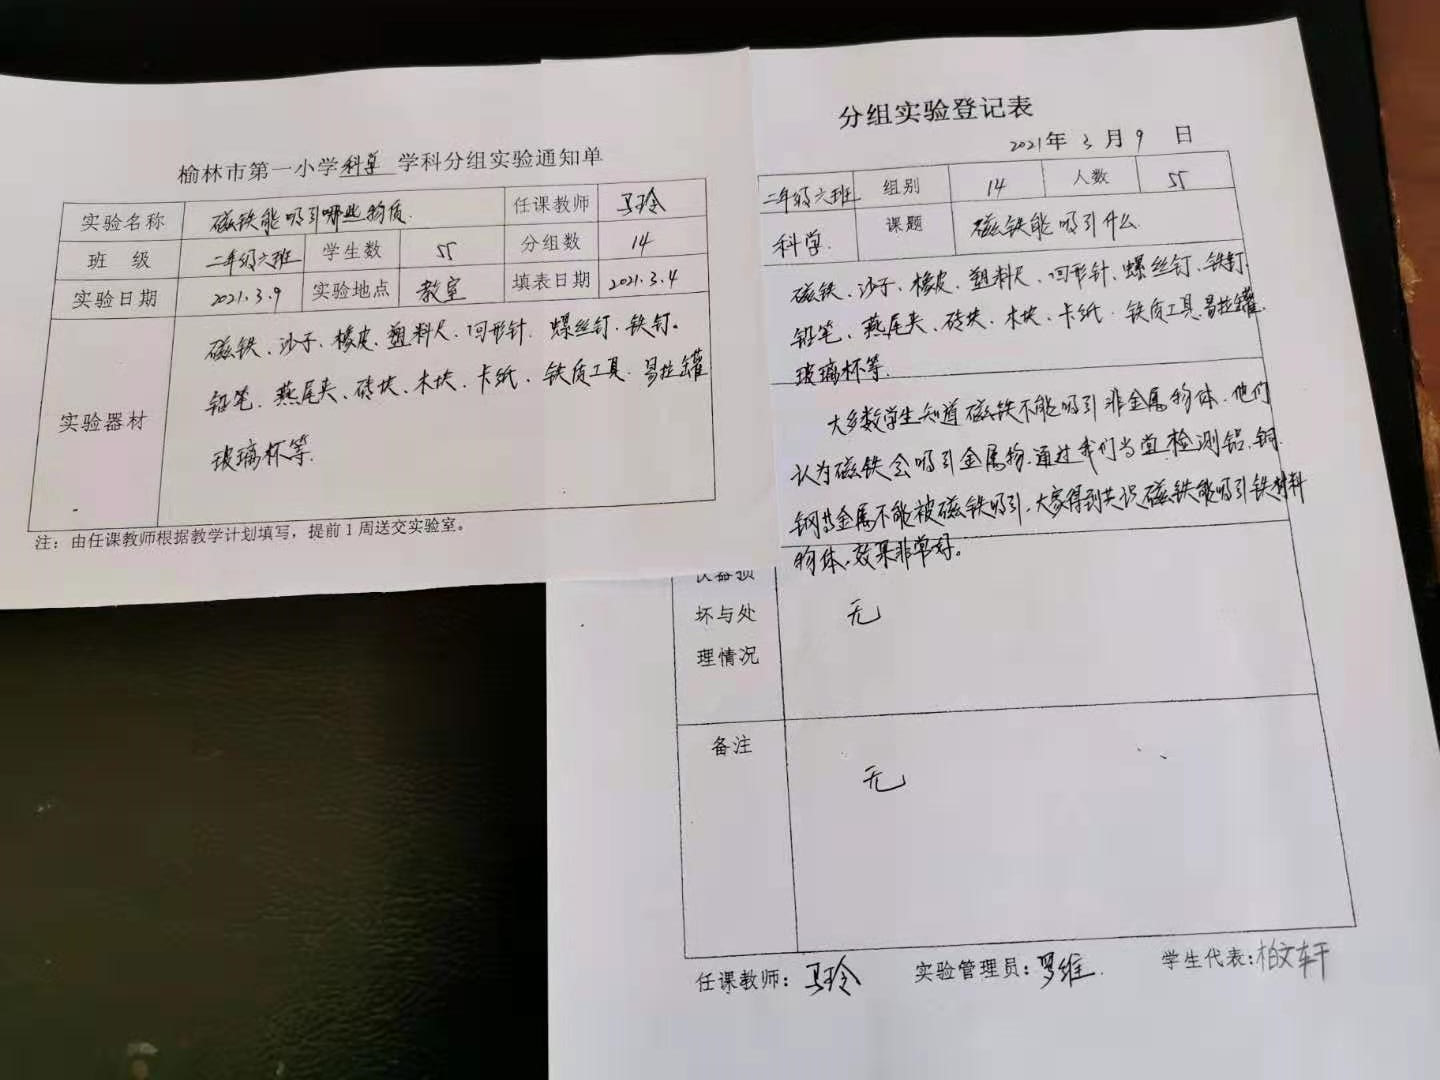 榆林市第一小学科学 学科分组实验通知单
实验名称 磁铁能吸引哪些物质. 任课教师 马玲
班 级 二年级六班 学生数 55 分组数 14
实验日期 2021.3.9 实验地点 教室 填表日期 2021.3.4
磁铁、沙子、橡皮、塑料尺、回形针、螺丝钉、铁钉。
实验器材 铅笔、燕尾夹、砖块、木块、卡纸、铁质工具、易拉罐
玻璃杯等.
注：由任课教师根据教学计划填写，提前1周送交实验室。
分组实验登记表
2021年 3 月 9 日
二年级六班 组别 14 人数 55
科学. 课题 磁铁能吸引什么.
磁铁、沙子、橡皮、塑料尺、回形针、螺丝钉、铁钉.
铅笔、燕尾夹、砖块、木块、卡纸、铁质工具、易拉罐.
玻璃杯等.
大多数学生知道磁铁不能吸引非金属物体.他们
认为磁铁会吸引金属物.通过我们当堂检测铝、铜.
钢等金属不能被磁铁吸引.大家得到共识磁铁能吸引铁材料
物体.效果非常好。
坏与处 无
理情况
备注
无
任课教师：马玲 实验管理员：罗维. 学生代表：柏文轩